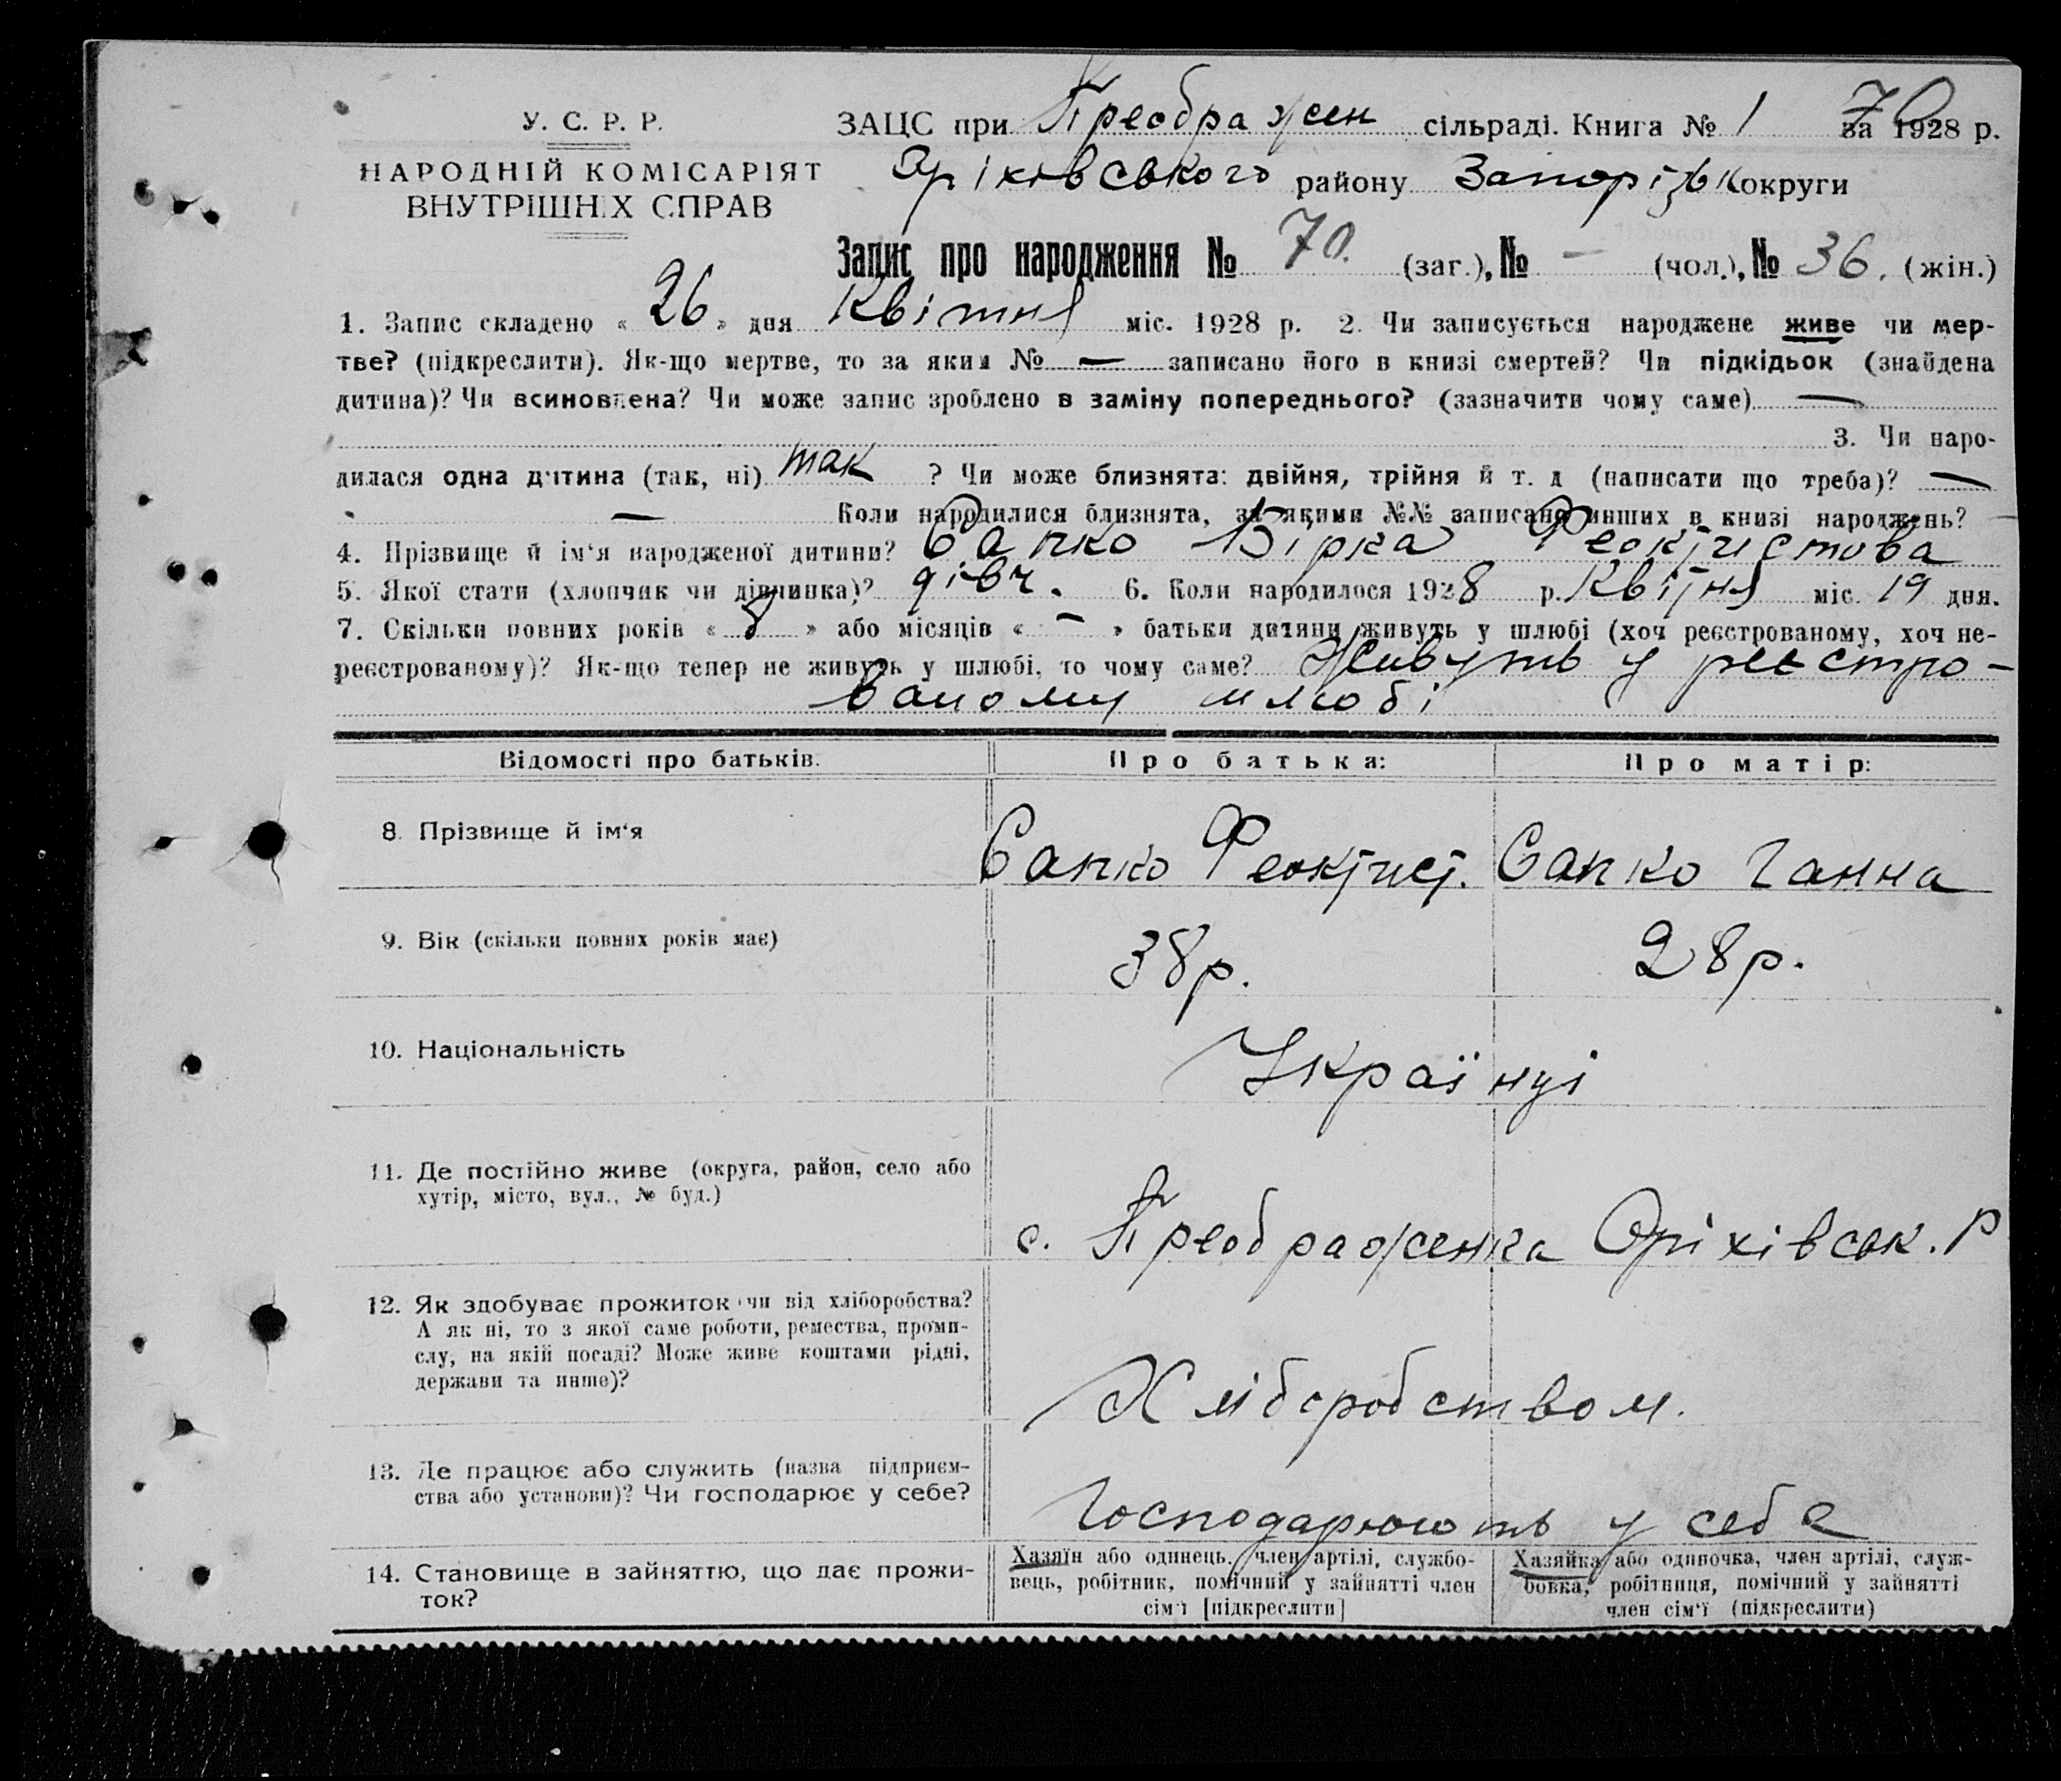 70
У. С. Р. Р.
НАРОДНІЙ КОМІСАРІЯТ
ВНУТРІШНІХ СПРАВ
ЗАЦС при Преображен сільраді. Книга № 1 за 1928 р.
Оріхівського району Запорізьк округи
Запис про народження № 70. (заг.), № — (чол.), № 36. (жін.)
1. Запис складено « 26 » дня Квітня міс. 1928 р. 2. Чи записується народжене живе чи мер-
тве? (підкреслити). Як-що мертве, то за яким № — записано його в книзі смертей? Чи підкідьок (знайдена
дитина)? Чи всиновлена? Чи може запис зроблено в заміну попереднього? (зазначити чому саме) —
3. Чи наро-
дилася одна дитина (так, ні) так ? Чи може близнята: двійня, трійня й т. д (написати що треба)? —
— Коли народилися близнята, за якими №№ записано инших в книзі народжень? —
4. Прізвище й ім'я народженої дитини? Сапко Вірка Феоктистова
5. Якої стати (хлопчик чи дівчинка)? дівч. 6. Коли народилося 1928 р. Квітня міс. 19 дня.
7. Скільки повних років « 8 » або місяців « — » батьки дитини живуть у шлюбі (хоч реєстрованому, хоч не-
реєстрованому)? Як-що тепер не живуть у шлюбі, то чому саме? Живуть у реєстро-
ваному шлюбі
Відомості про батьків. Про батька: Про матір:
8. Прізвище й ім'я Сапко Феоктист. Сапко Ганна
9. Вік (скільки повних років має) 38 р. 28 р.
10. Національність Українці
11. Де постійно живе (округа, район, село або
хутір, місто, вул., № буд.)
с. Преображенка Оріхівськ. Р
12. Як здобуває прожиток чи від хліборобства?
А як ні, то з якої саме роботи, ремества, проми-
слу, на якій посаді? Може живе коштами рідні,
держави та инше)?
Хліборобством.
13. Де працює або служить (назва підприєм-
ства або установи)? Чи господарює у себе?
Господарюють у себе
14. Становище в зайняттю, що дає прожи-
ток?
Хазяїн або одинець, член артілі, службо-
вець, робітник, помічний у зайнятті член
сім'ї [підкреслити]
Хазяйка або одиночка, член артілі, служ-
бовка, робітниця, помічний у зайнятті
член сім'ї (підкреслити)